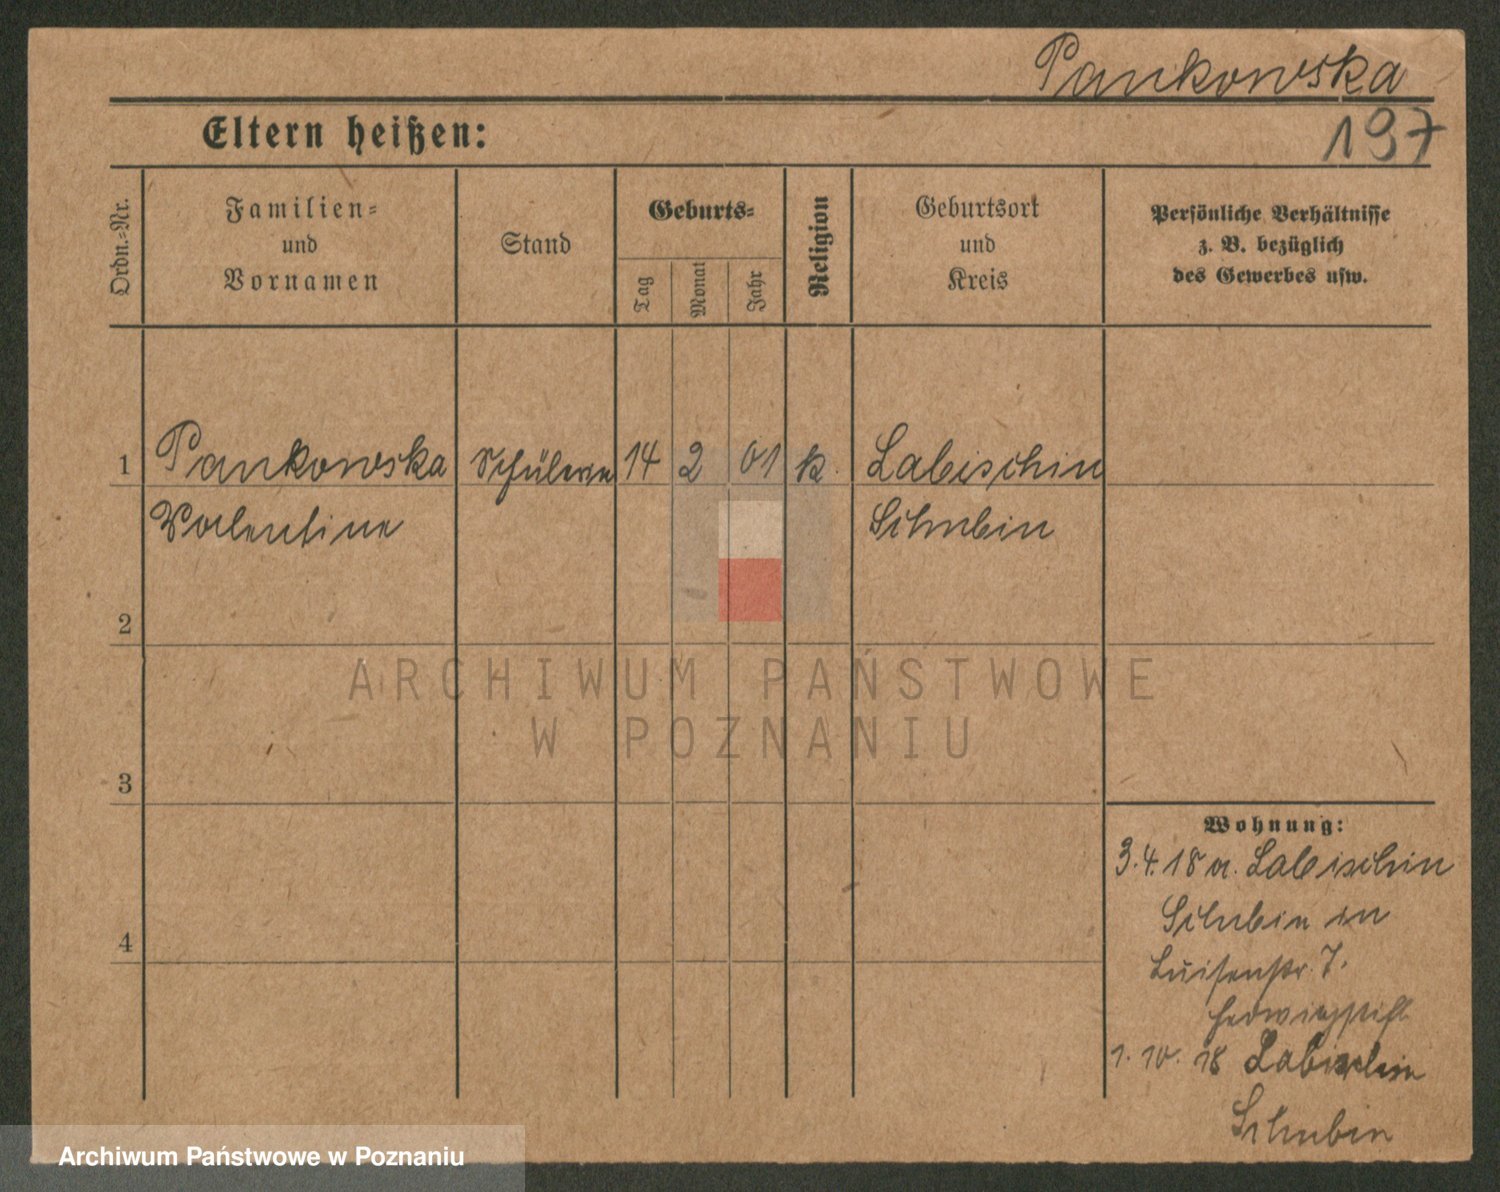 Pankowska
197
Eltern heißen:
Ordn.-Nr.
Familien-
und
Vornamen
Stand
Geburts-
Tag
Monat
Jahr
Religion
Geburtsort
und
Kreis
Persönliche Verhältnisse
z. B. bezüglich
des Gewerbes usw.
1 Pankowska Schülerin 14 2 01 k. Labischin
Valentine Schubin
2
3
4
Wohnung:
3.4.18 a. Labischin
Schubin in
Luisenstr. 7.
Hedwigstift
1.10.18 Labischin
Schubin
ARCHIWUM PAŃSTWOWE
W POZNANIU
Archiwum Państwowe w Poznaniu